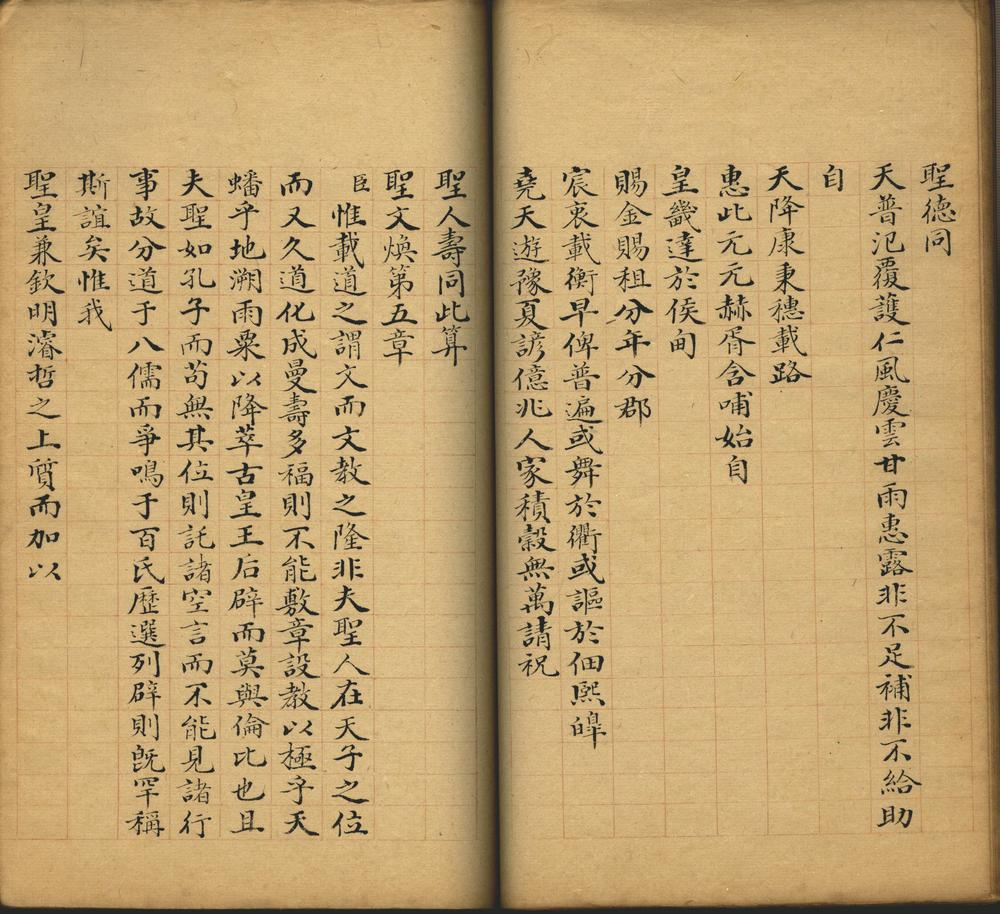 聖德同
天普氾覆護仁風慶雲甘雨惠露非不足補非不給助
自
天降康秉穗載路
惠此元元赫胥含哺始自
皇畿達於侯甸
賜金賜租分年分郡
宸衷載衡早俾普遍或舞於衢或謳於佃熙皞
堯天遊豫夏諺億兆人家積穀無萬請祝
聖人壽同此算
聖文煥第五章
臣惟載道之謂文而文教之隆非夫聖人在天子之位
而又久道化成曼壽多福則不能敷章設教以極乎天
蟠乎地溯雨粟以降萃古皇王后辟而莫與倫比也且
夫聖如孔子而苟無其位則託諸空言而不能見諸行
事故分道于八儒而爭鳴于百氏歷選列辟則旣罕稱
斯誼矣惟我
聖皇兼欽明濬哲之上質而加以